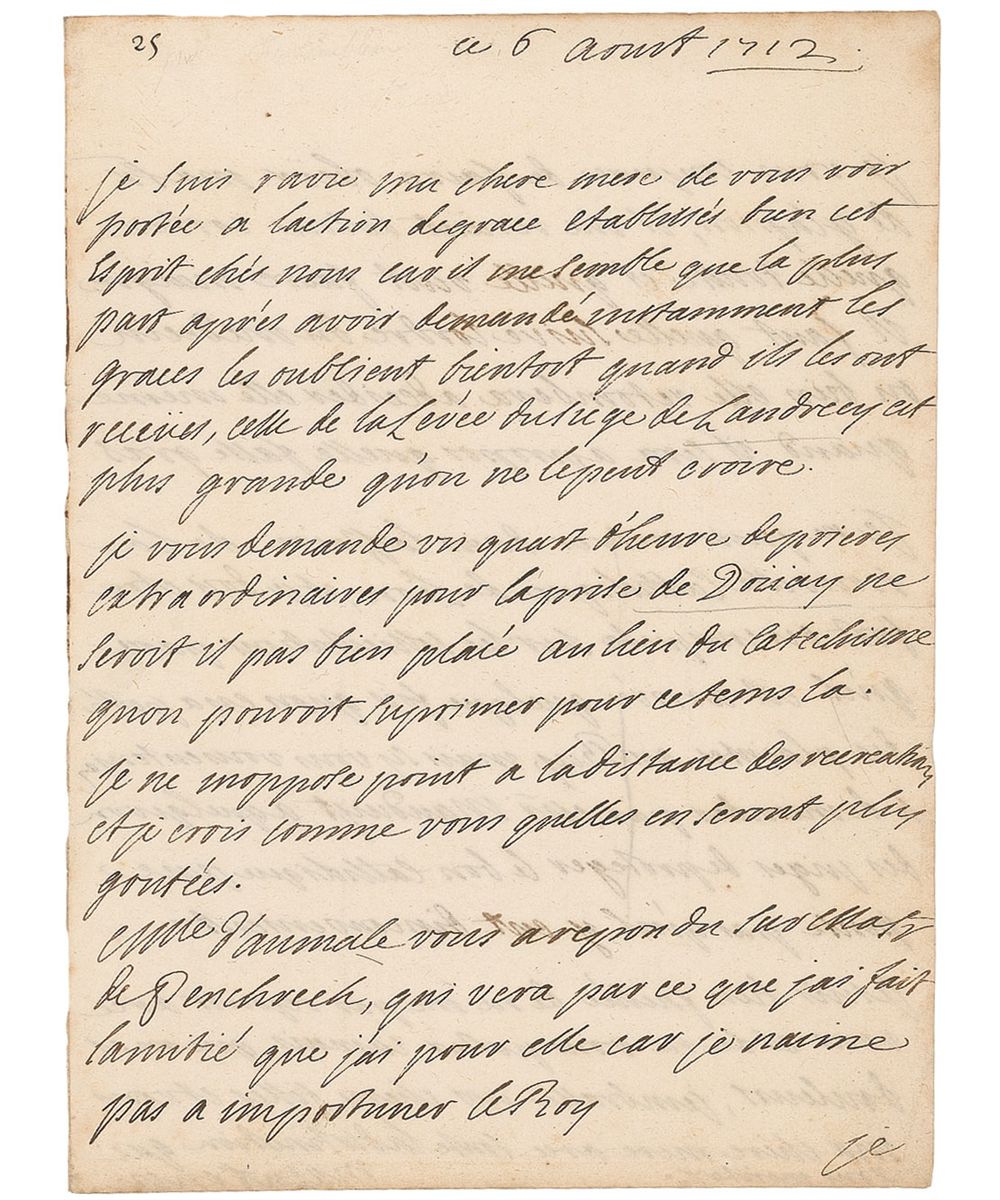 25
ce 6 aoust 1712.
je suis ravie ma chere mere de vous voir
portée a laction degrace etablissés bien cet
Esprit chés nous car il me semble que la plus
part aprés avoir demandé instamment les
graces les oublient bientost quand ils les ont
receües, celle de la Levée du siege de Landrecy est
plus grande qu'on ne le peut croire.
je vous demande un quart d'heure de prieres
extraordinaires pour la prise de Doüay ne
seroit il pas bien placé au lieu du Catechisme
quon pouroit suprimer pour ce tems la.
Je ne moppose point a la distance des recreations
et je crois comme vous quelles en seront plus
goutées.
Mlle d'aumale vous a repondu sur
de Penchrech, qui vera par ce que jai fait
lamitié que j'ai pour elle car je naime
pas a importuner le Roy
je